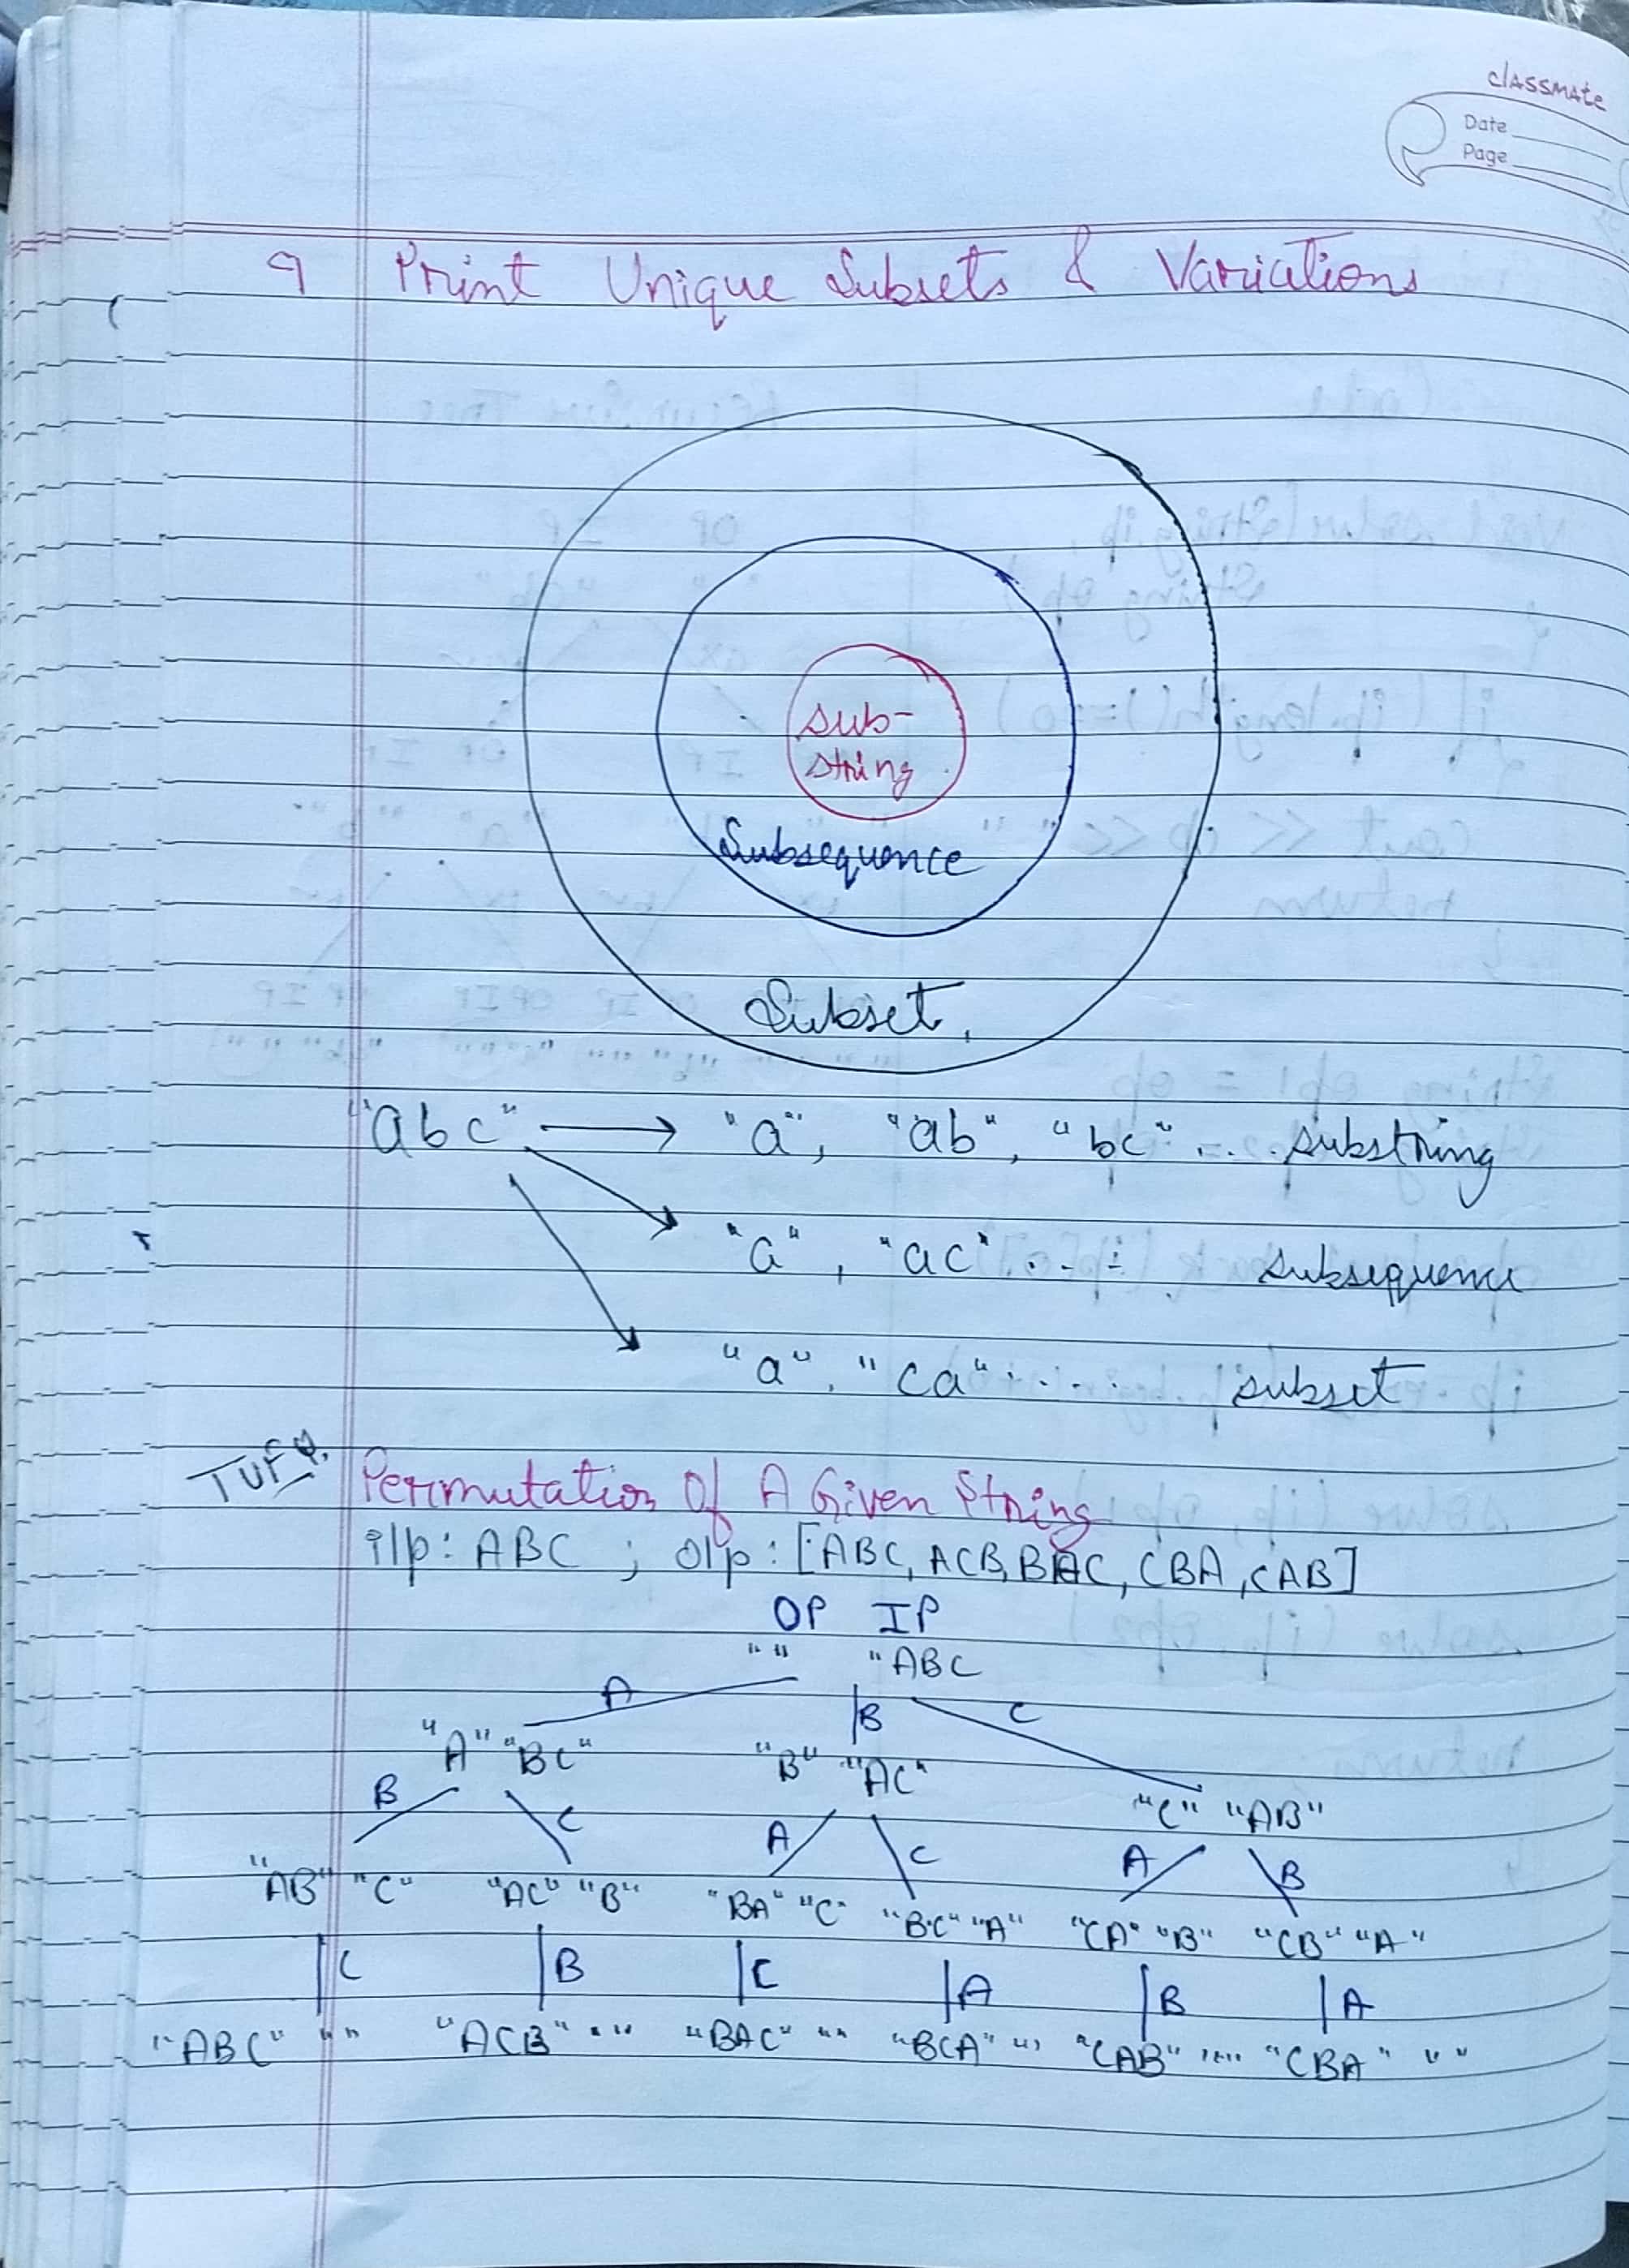 classmate
Date
Page
9 Print Unique Subsets & Variations
sub-
string
Subsequence
Subset,
"abc" → "a", "ab", "bc" .... substring
"a", "ac" .... subsequence
"a", "ca" .... subset
TUF
Permutation Of A Given String
i/p: ABC ; o/p: [ABC, ACB, BAC, CBA, CAB]
OP IP
" " "ABC
A B C
"A" "BC" "B" "AC" "C" "AB"
B C A C A B
"AB" "C" "AC" "B" "BA" "C" "BC" "A" "CA" "B" "CB" "A"
C B C A B A
"ABC" " " "ACB" " " "BAC" " " "BCA" " " "CAB" " " "CBA" " "